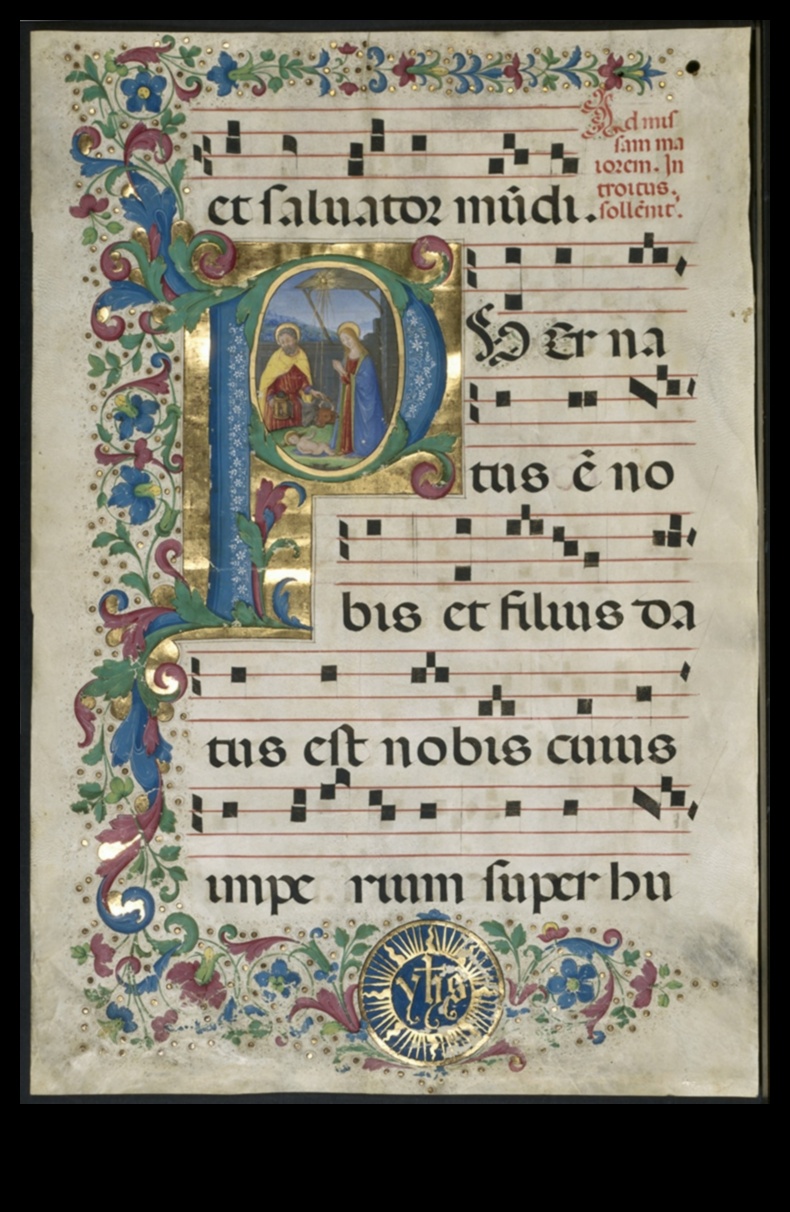 et saluator mūdi.
Ad mis
sam ma
iorem. In
troitus.
sollēnit'.
P VEr na
tus ē no
bis et filius da
tus est nobis cuius
impe rium super hu
yhs